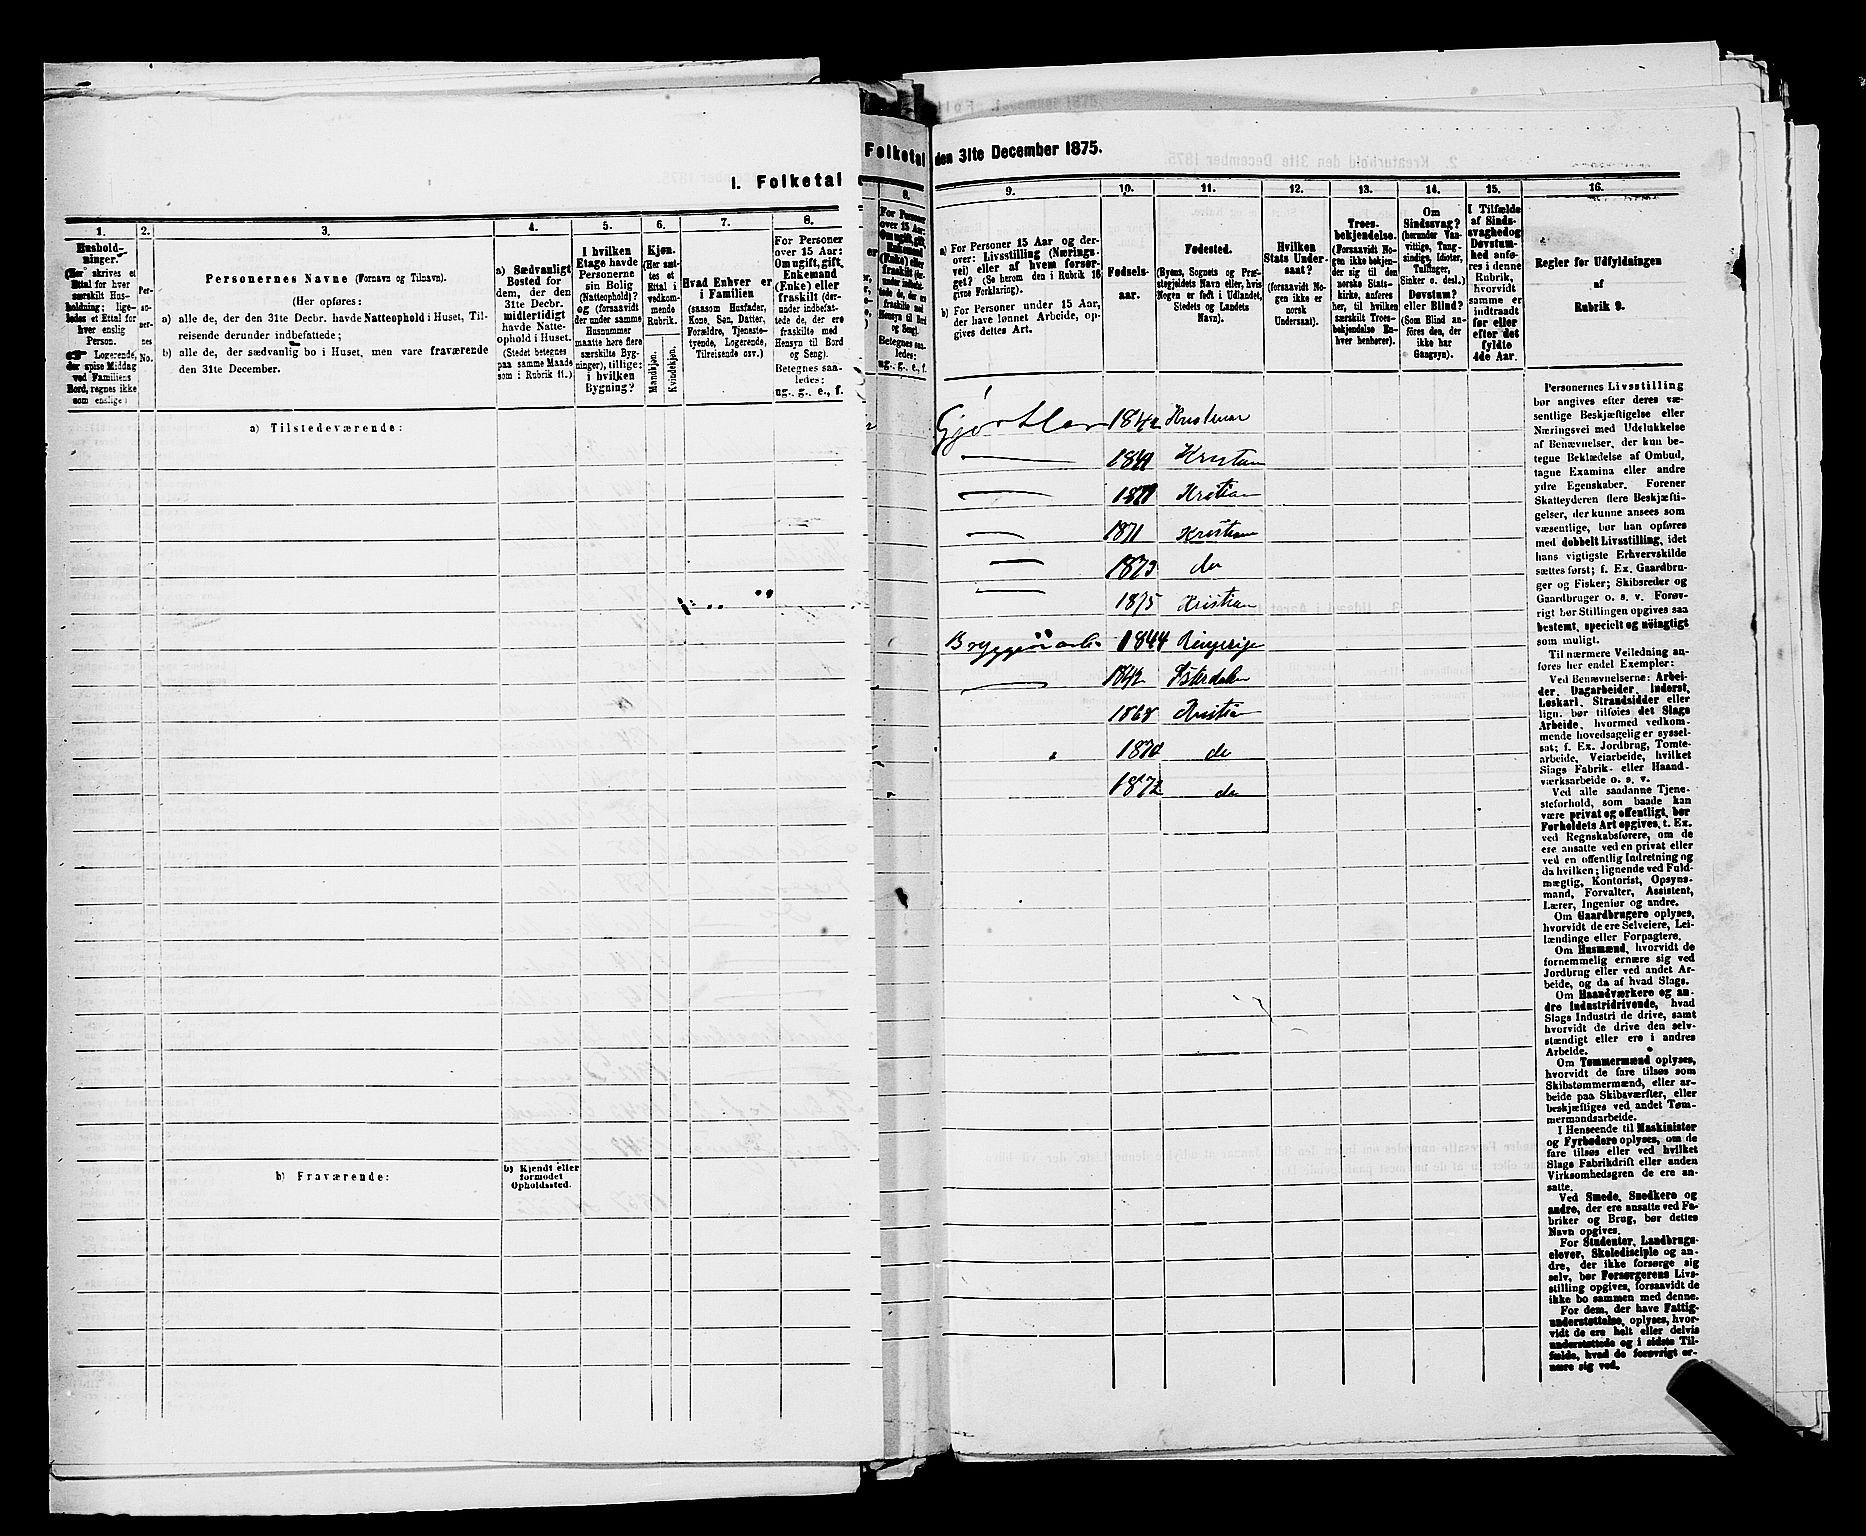 I. Folketal
1.
Hushold-
ninger.
(Her skrives et
Ettal for hver
særskilt Hus-
holdning; lige-
ledes et Ettal for
hver enslig
Person.
Logerende,
der spise Middag
ved Familiens
Bord, regnes ikke
som enslige)
2.
Per-
so-
ner-
nes
No.
3.
Personernes Navne (Fornavn og Tilnavn).
(Her opføres:
a) alle de, der den 31te Decbr. havde Natteophold i Huset, Til-
reisende derunder indbefattede;
b) alle de, der sædvanlig bo i Huset, men vare fraværende
den 31te December.
4.
a) Sædvanligt
Bosted for
dem, der den
31te Decbr.
midlertidigt
havde Natte-
ophold i Huset.
(Stedet betegnes
paa samme Maade
som i Rubrik 11.)
5.
I hvilken
Etage havde
Personerne
sin Bolig
(Natteophold)?
og (forsaavidt
der under samme
Husnummer
maatte høre flere
særskilte Byg-
ninger), tillige:
i hvilken
Bygning?
6.
Kjøn.
(Her sæt-
tes et
Ettal i
vedkom-
mende
Rubrik.
Mandkjøn.
Kvindekjøn.
7.
Hvad Enhver er
i Familien
(saasom Husfader,
Kone, Søn, Datter,
Forældre, Tjeneste-
tyende, Logerende,
Tilreisende osv.)
8.
For Personer
over 15 Aar:
Om ugift, gift,
Enkemand
(Enke) eller
fraskilt (der-
under indbefat-
tede de, der ere
fraskilte med
Hensyn til Bord
og Seng).
Betegnes saa-
ledes:
ug., g., e., f.
a) Tilstedeværende:
b) Fraværende:
b) Kjendt eller
formodet
Opholdssted.
Folketal
den 31te December 1875.
9.
a) For Personer 15 Aar og der-
over: Livsstilling (Nærings-
vei) eller af hvem forsør-
get? (Se herom den i Rubrik 16
givne Forklaring).
b) For Personer under 15 Aar,
der have lønnet Arbeide, op-
gives dettes Art.
10.
Fødsels-
aar.
11.
Fødested.
(Byens, Sognets og Præ-
stegjeldets Navn eller, hvis
Nogen er født i Udlandet,
Stedets og Landets
Navn).
12.
Hvilken
Stats Under-
saat?
(forsaavidt No-
gen ikke er
norsk
Undersaat).
13.
Troes-
bekjendelse.
(Forsaavidt No-
gen ikke bekjen-
der sig til den
norske Stats-
kirke, anføres
her, til hvilken
særskilt Troes-
bekjendelse En-
hver henhører).
14.
Om
Sindssvag?
(herunder Van-
vittige, Tung-
sindige, Idioter,
Tullinger,
Sinker o. desl.)
Døvstum?
eller Blind?
(Som Blind an-
føres den, der
ikke har
Gangsyn).
15.
I Tilfælde
af Sinds-
svaghed og
Døvstum-
hed anfø-
res i denne
Rubrik,
hvorvidt
samme er
indtraadt
før eller
efter det
fyldte
4de Aar.
16.
Regler for Udfyldningen
af
Rubrik 9.
Gjørtler 1842
1849
1871 Kristian
1873 do
1875 Kristian
1844 Ringerige
1842 Østerdalen
1868 Kristian
1870 do
1872 do
Personernes Livsstilling
bør angives efter deres væ-
sentlige Beskjæftigelse eller
Næringsvei med Udelukkelse
af Benævnelser, der kun be-
tegne Beklædelse af Ombud,
tagne Examina eller andre
ydre Egenskaber. Forener
Skatteyderen flere Beskjæfti-
gelser, der kunne ansees som
væsentlige, bør han opføres
med dobbelt Livsstilling, idet
hans vigtigste Erhvervskilde
sættes først; f. Ex. Gaardbru-
ger og Fisker; Skibsreder og
Gaardbruger o. s. v. Forøv-
rigt bør Stillingen opgives saa
bestemt, specielt og nöiagtigt
som muligt.
Til nærmere Veiledning an-
føres her endel Exempler:
Ved Benævnelserne: Arbei-
der, Dagarbeider, Inderst,
Løskarl, Strandsidder eller
lign. bør tilføies det Slags
Arbeide, hvormed vedkom-
mende hovedsagelig er syssel-
sat; f. Ex. Jordbrug, Tomte-
arbeide, Veiarbeide, hvilket
Slags Fabrik- eller Haand-
værksarbeide o. s. v.
Ved alle saadanne Tjene-
steforhold, som baade kan
være privat og offentligt, bør
Forholdets Art opgives, t. Ex.
ved Regnskabsførere, om de
ere ansatte ved en privat eller
ved en offentlig Indretning og
da hvilken; lignende ved Fuld-
mægtig, Kontorist, Opsyns-
mand, Forvalter, Assistent,
Lærer, Ingeniør og andre.
Om Gaardbrugere oplyses,
hvorvidt de ere Selveiere, Lei-
lændinge eller Forpagtere.
Om Husmænd, hvorvidt de
fornemmelig ernære sig ved
Jordbrug eller ved andet Ar-
beide, og da af hvad Slags.
Om Haandværkere og an-
dre Industridrivende, hvad
Slags Industri de drive, samt
hvorvidt de drive den selv-
stændigt eller ere i andres
Arbeide.
Om Tømmermænd oplyses,
hvorvidt de fare tilsøs som
Skibstømmermænd, eller ar-
beide paa Skibsværfter, eller
beskjæftiges ved andet Tøm-
mermandsarbeide.
I Henseende til Maskinister
og Fyrbødere oplyses, om de
fare tilsøs eller ved hvilket
Slags Fabrikdrift eller anden
Virksomhedsgren de ere an-
satte.
Ved Smede, Snedkere og
andre, der ere ansatte ved Fa-
briker og Brug, bør dettes
Navn opgives.
For Studenter, Landbrugs-
elever, Skoledisciple og an-
dre, der ikke forsørge sig
selv, bør Forsørgerens Livs-
stilling opgives, forsaavidt de
ikke bo sammen med denne.
For dem, der have Fattig-
understøttelse, oplyses, hvor-
vidt de ere helt eller delvis
understøttede og i sidste Til-
fælde, hvad de forøvrigt er-
nære sig ved.